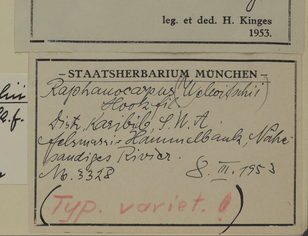 leg. et ded. H. Kinges
1953.
STAATSHERBARIUM MÜNCHEN
Raphanocarpus (Welwitschii)
Hook. fil.
Distr. Karibib, S.W.A.
Hammelbank, Nähe
sandiges Rivier.
No. 3328 8. III. 1953
(Typ. variet. !)